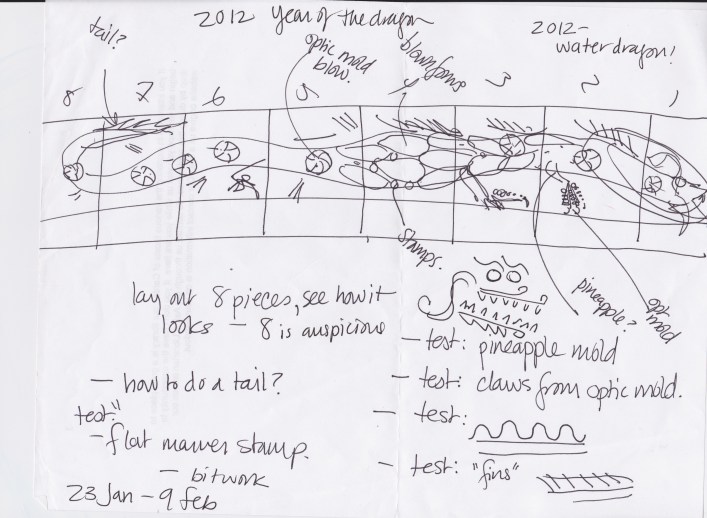 2012 Year of the dragon
2012-
water dragon!
tail?
optic mold
blow.
blown forms
8 7 6 5 4 3 2 1
stamps.
pineapple?
opt
mold
lay out 8 pieces, see how it
looks – 8 is auspicious
– test: pineapple mold
– how to do a tail?
– test: claws from optic mold.
test:"
– test:
– flat marver stamp.
– test: "fins"
– bitwork
23 Jan – 9 feb